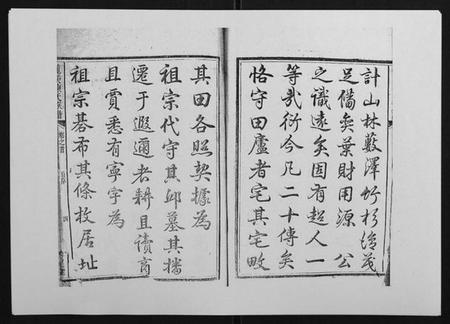 計山林藪澤竹杉後茂
足備矣業財用源　公
之識遠矣固有超人一
等哉衍今凡二十傳矣
恪守田廬者宅其宅畋
其田各照契據為
祖宗代守其邱墓其播
遷于遐邇者耕且讀商
且賈悉有寧宇為
祖宗碁布其條故居址